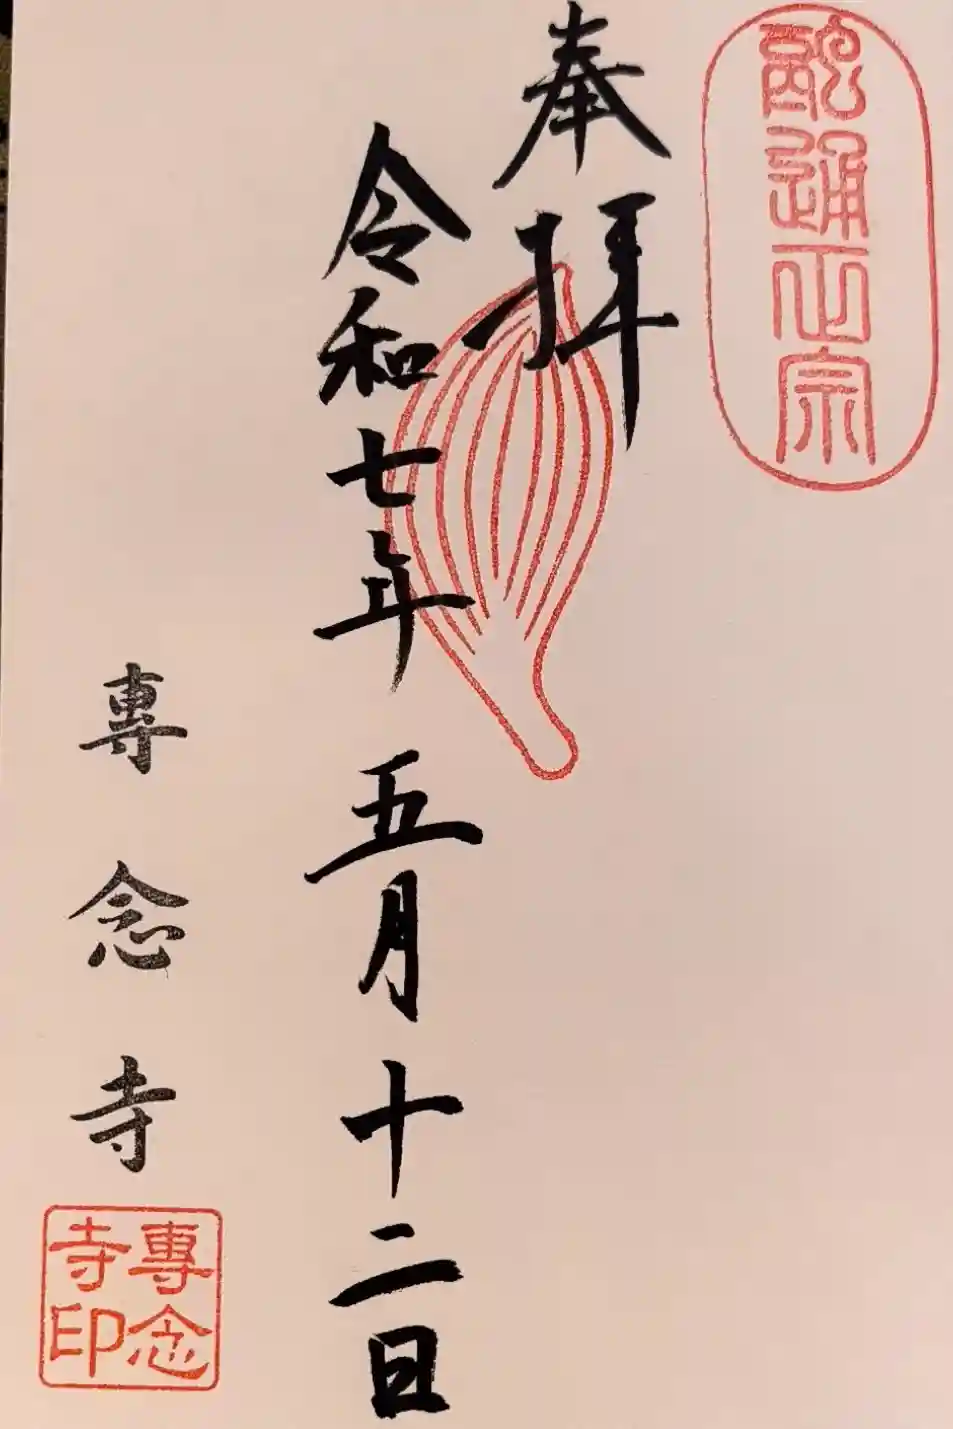 融通正宗
奉拝
令和七年 五月十二日
專念寺
專念寺印